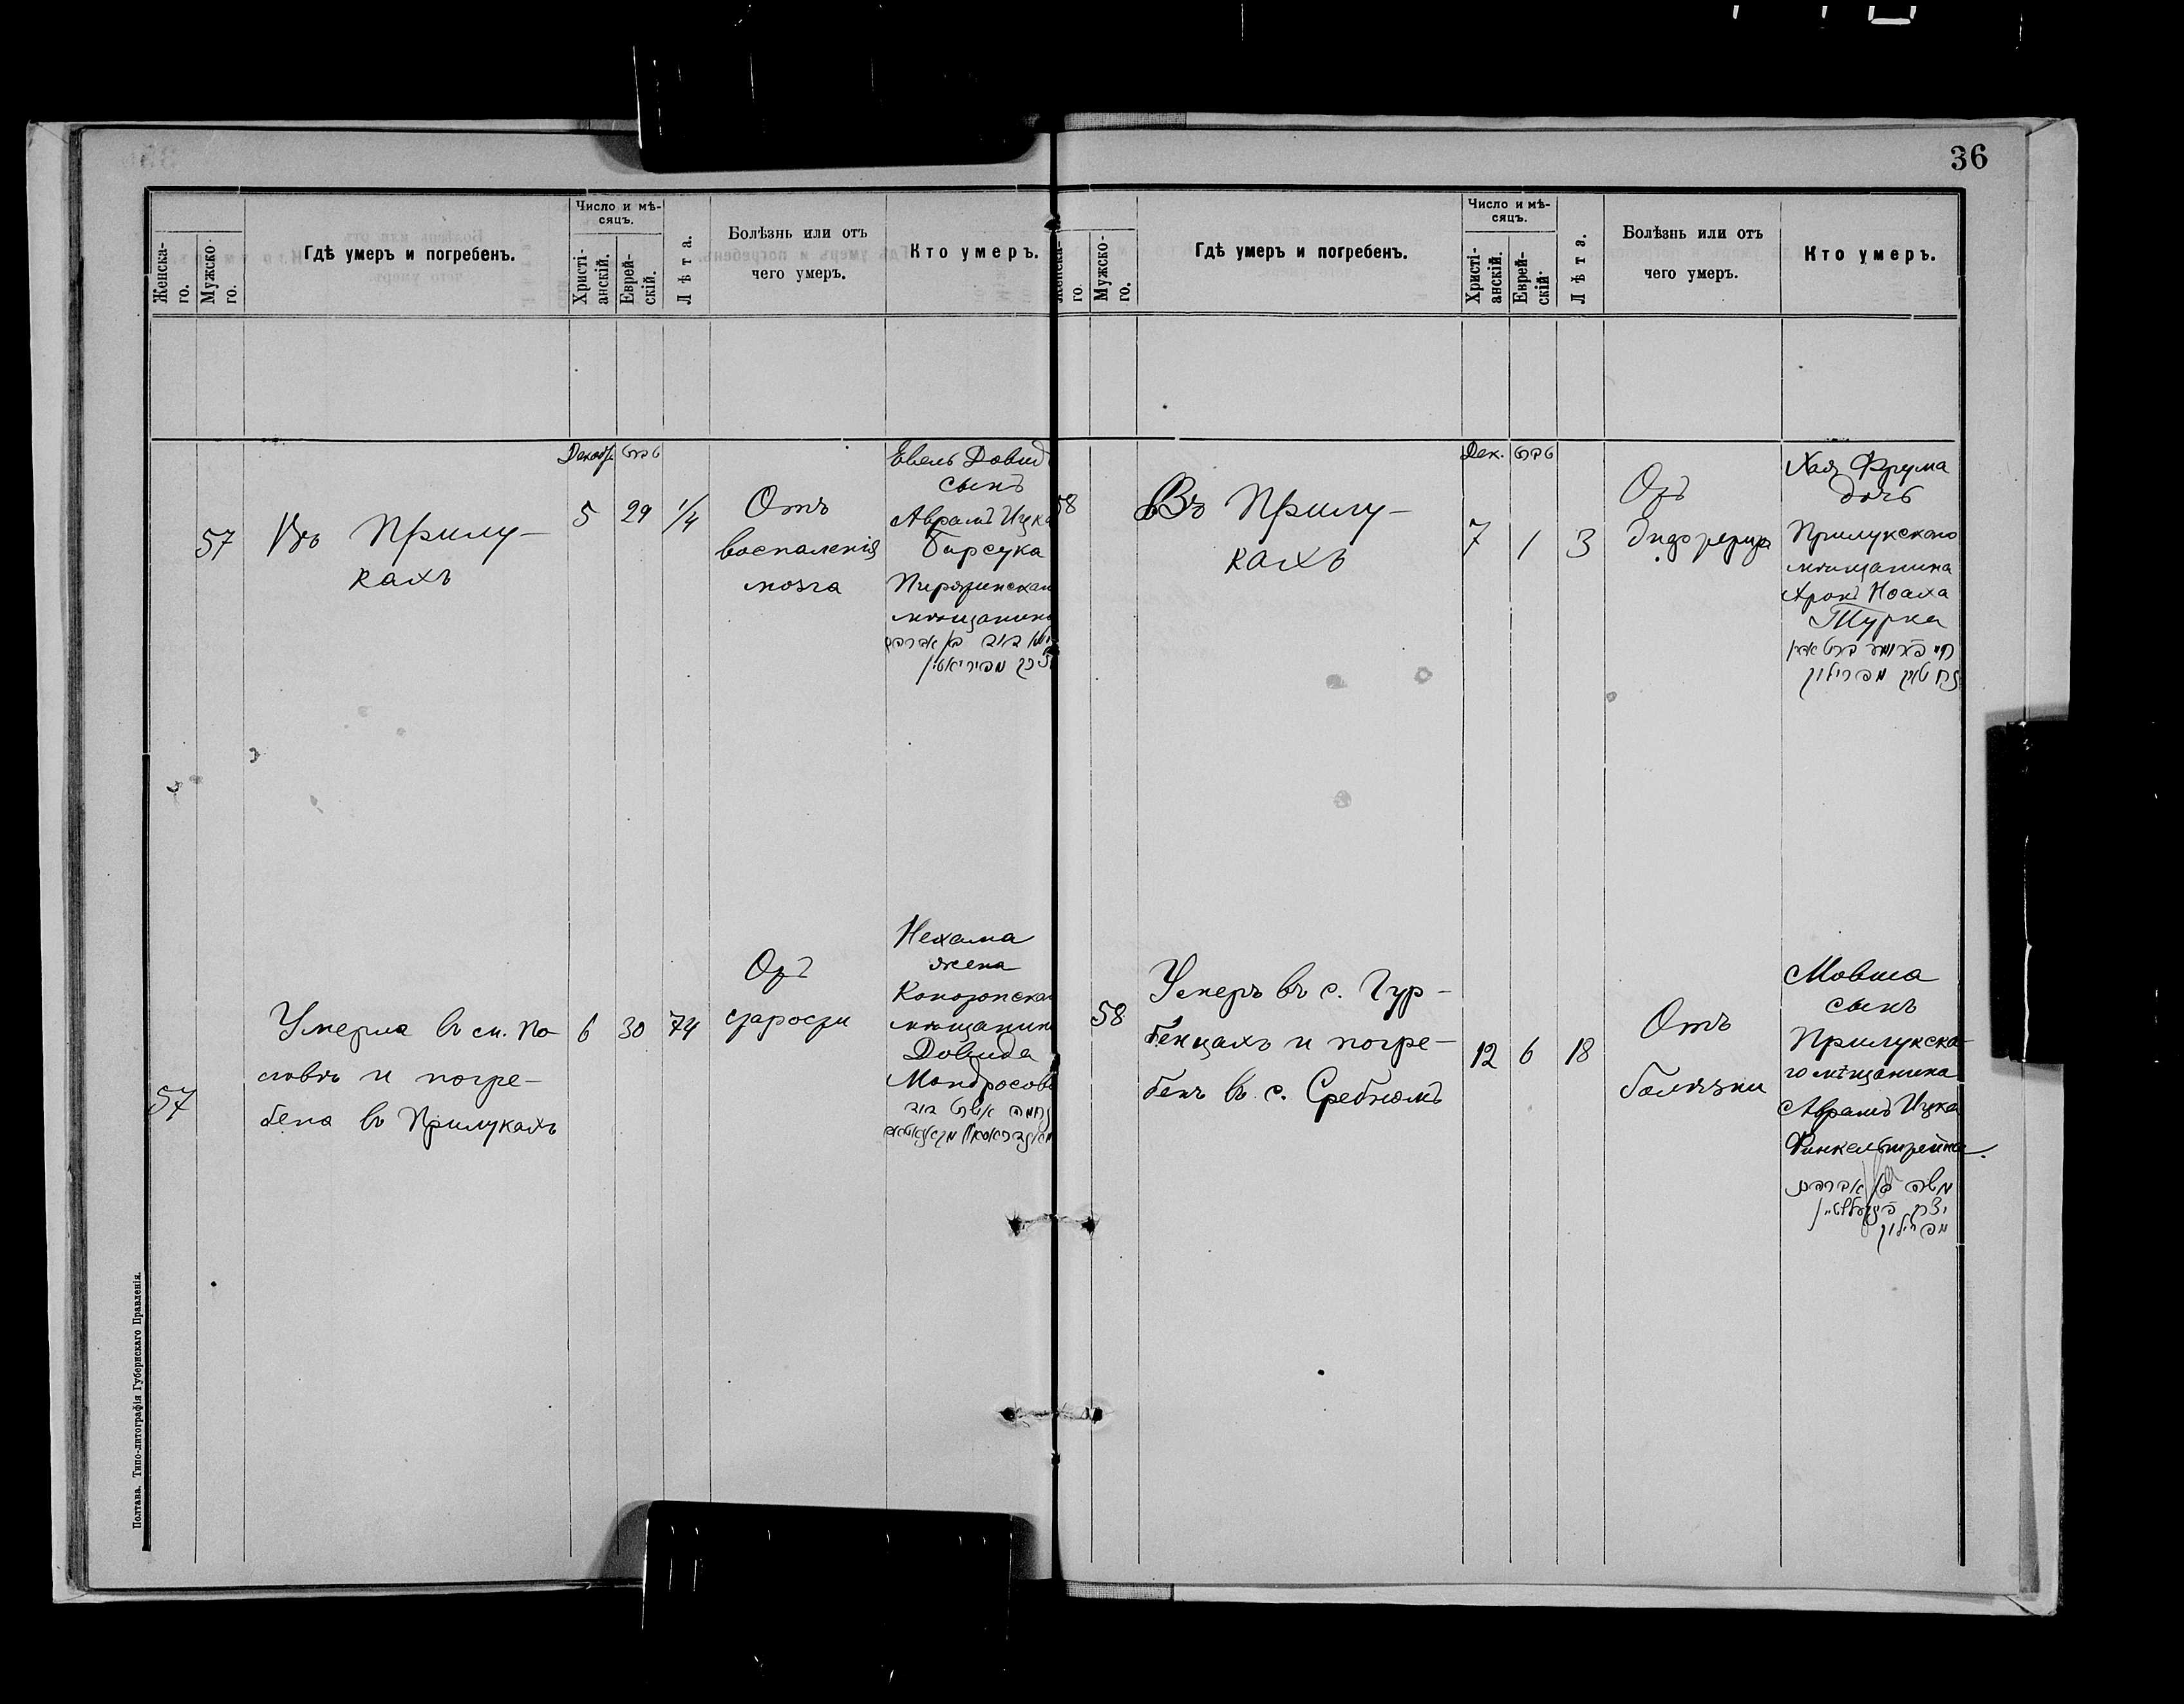 36
Женска-
го.
Мужско-
го.
Гдѣ умеръ и погребенъ.
Число и мѣ-
сяцъ.
Христі-
анскій.
Еврей-
скій.
Лѣта.
Болѣзнь или отъ
чего умеръ.
Кто умеръ.
57
Въ Прилу-
кахъ
Декабр.
5
29
1/4
Отъ
воспаленія
мозга
Евель Довид
сынъ
Аврамъ Ицка
Барсука
Пирятинскаго
мѣщанина
57
Умерла въ см.
и погре-
бена въ Прилукахъ
6
30
74
Отъ
старости
Нехама
жена
мѣщанин
Довида
Мондросов
Женска-
го
Мужско-
го.
Гдѣ умеръ и погребенъ.
Число и мѣ-
сяцъ.
Христі-
анскій.
Еврей-
скій.
Лѣта.
Болѣзнь или отъ
чего умеръ.
Кто умеръ.
58
Въ Прилу-
кахъ
Дек.
7
1
3
Отъ
Хая Фрума
дочь
Прилукскаго
мѣщанина
Аронъ Ноаха
Турка
58
Умеръ въ с. Гур-
бенцахъ и погре-
бенъ въ с. Сребномъ
12
6
18
Отъ
болѣзни
Мовша
сынъ
Прилукска-
го мѣщанина
Аврамъ Ицка
Финкельштейна.
משה בן אברהם
יצחק
מפרילוק
Полтава. Типо-литографія Губернскаго Правленія.